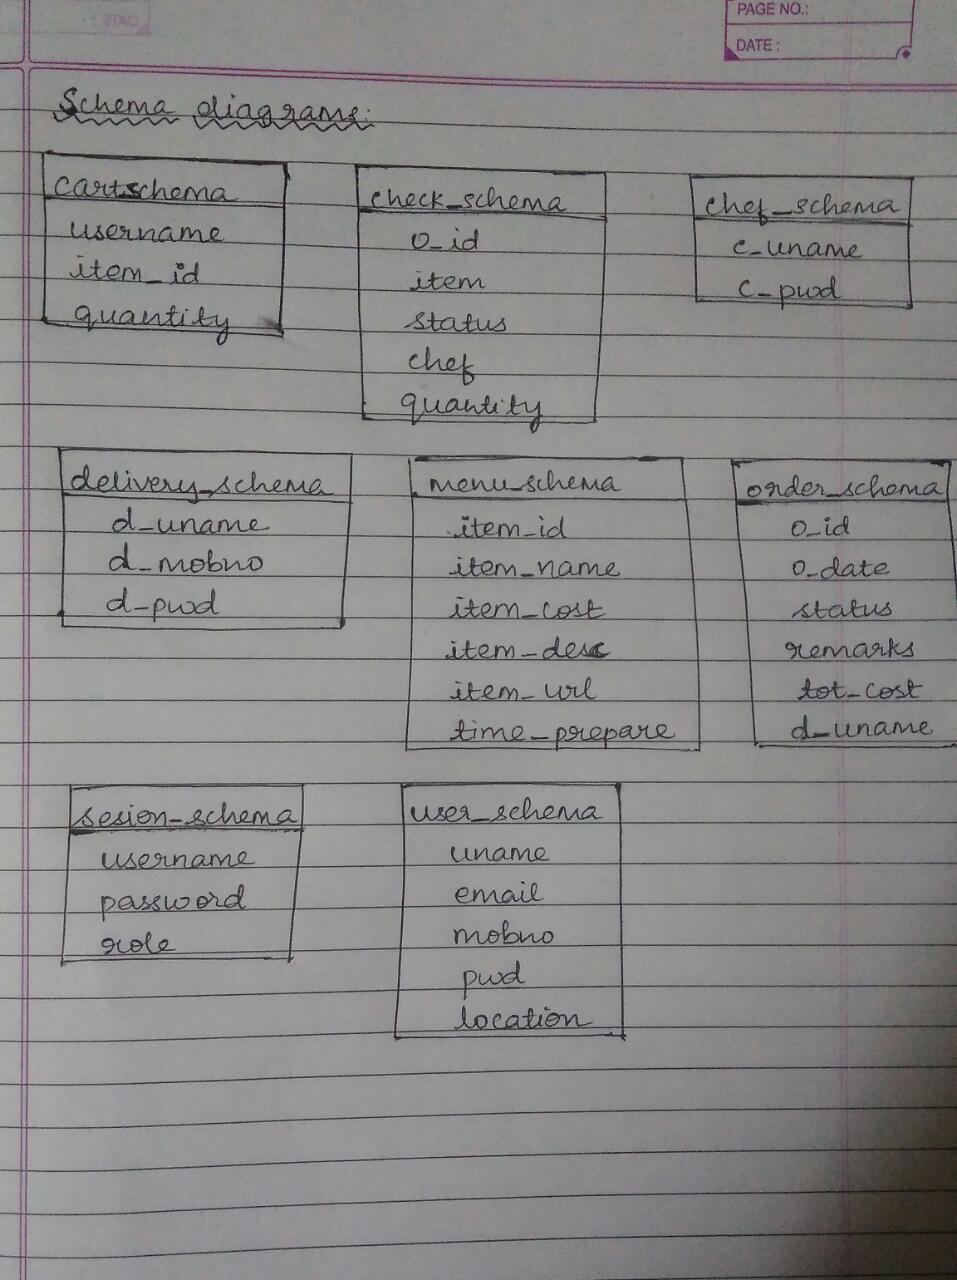 PAGE NO.:
DATE :
Schema diagrams:
cartschema
username
item_id
quantity
check_schema
o_id
item
status
chef
quantity
chef_schema
c_uname
c_pwd
delivery_schema
d_uname
d_mobno
d_pwd
menu_schema
item_id
item_name
item_cost
item_desc
item_url
time_prepare
order_schema
o_id
o_date
status
remarks
tot_cost
d_uname
sesion_schema
username
password
role
user_schema
uname
email
mobno
pwd
location